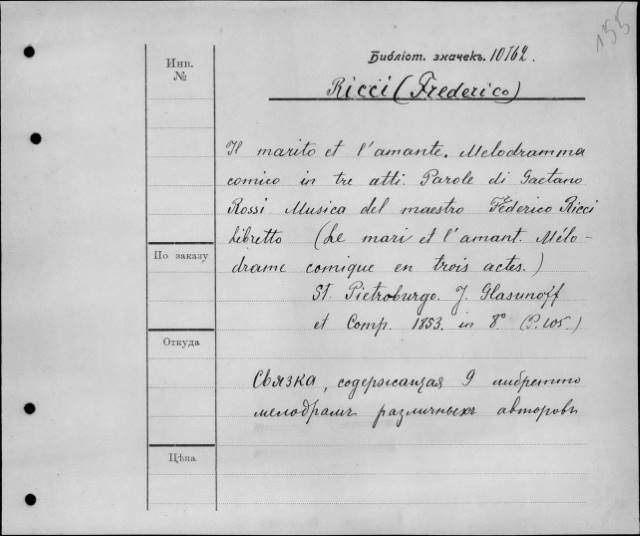 155
Библіот. значекъ. 10762.
Инв.
№
Ricci (Frederico)
Il marito et l'amante. Melodramma
comico in tre atti. Parole di Gaetano
Rossi. Musica del maestro Féderico Ricci
Libretto (Le mari et l'amant. Mélo-
drame comique en trois actes.)
По заказу
St Pietroburgo. J. Glasunoff
et Comp. 1853. in 8° (P. 105.)
Откуда
Связка, содержащая 9 либретто
мелодрамъ различныхъ авторовъ
Цѣна